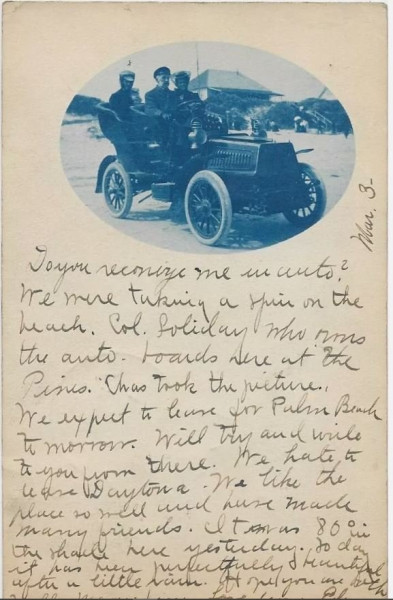 Mar. 3-
Do you reconize me in auto?
We were taking a spin on the
beach. Col. Soliday who owns
the auto. boards here at the
Pines. Chas took the picture.
We expect to leave for Palm Beach
to morrow. Will try and write
to you from there. We hate to
leave Daytona. We like the
place so well and have made
many friends. It was 80° in
the shade here yesterday. To day
it has been perfectly beautiful
after a little rain. Hope you are